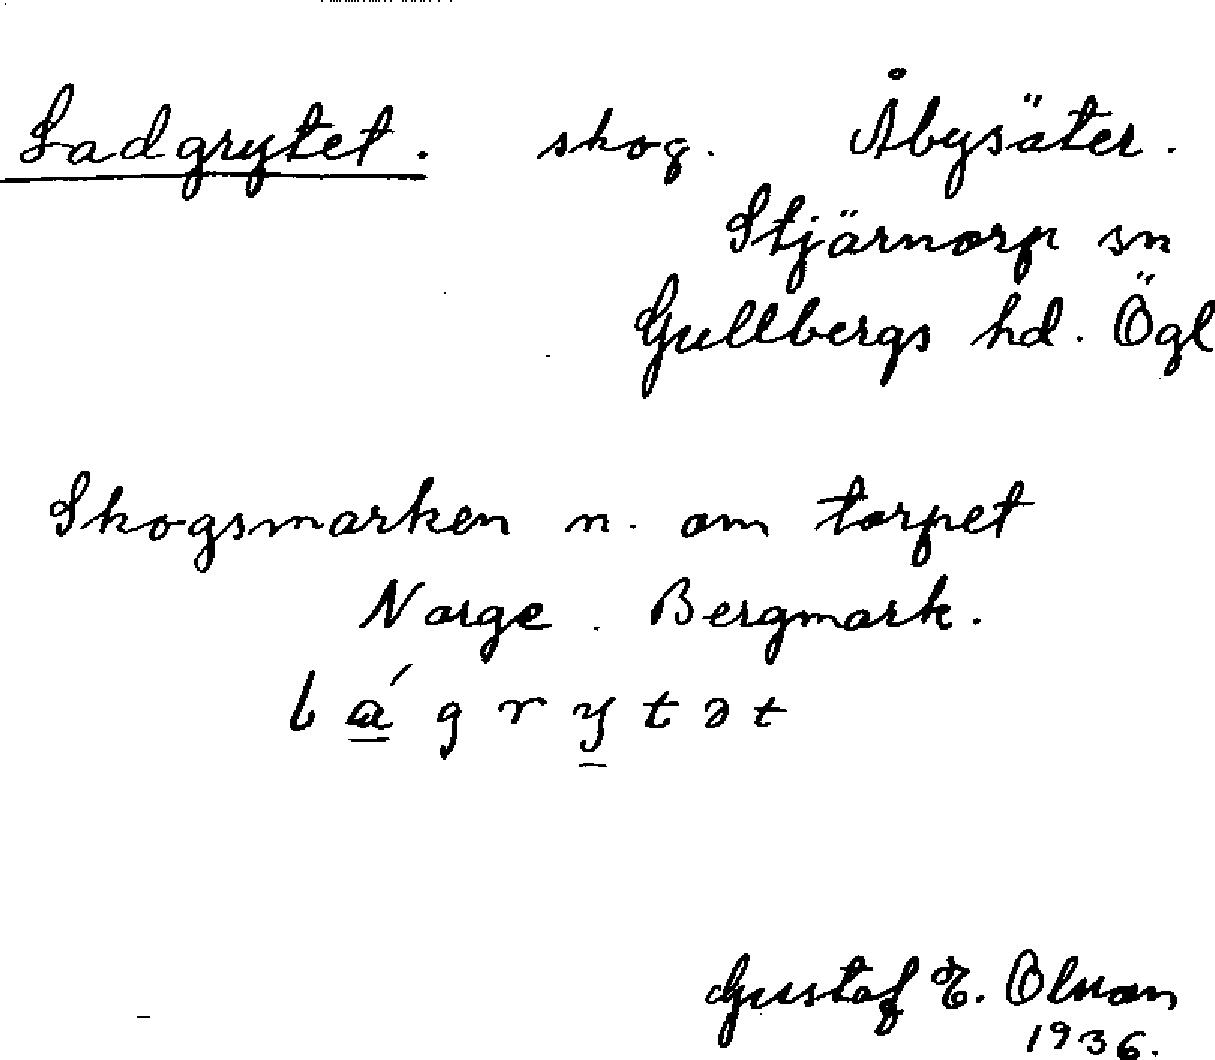 Ladgrytet. skog. Åbysäter.
Stjärnorp sn
Gullbergs hd. Ögl
Skogsmarken n. om torpet
Norge. Bergmark.
lágrytət
Gustaf E. Olsson
1936.